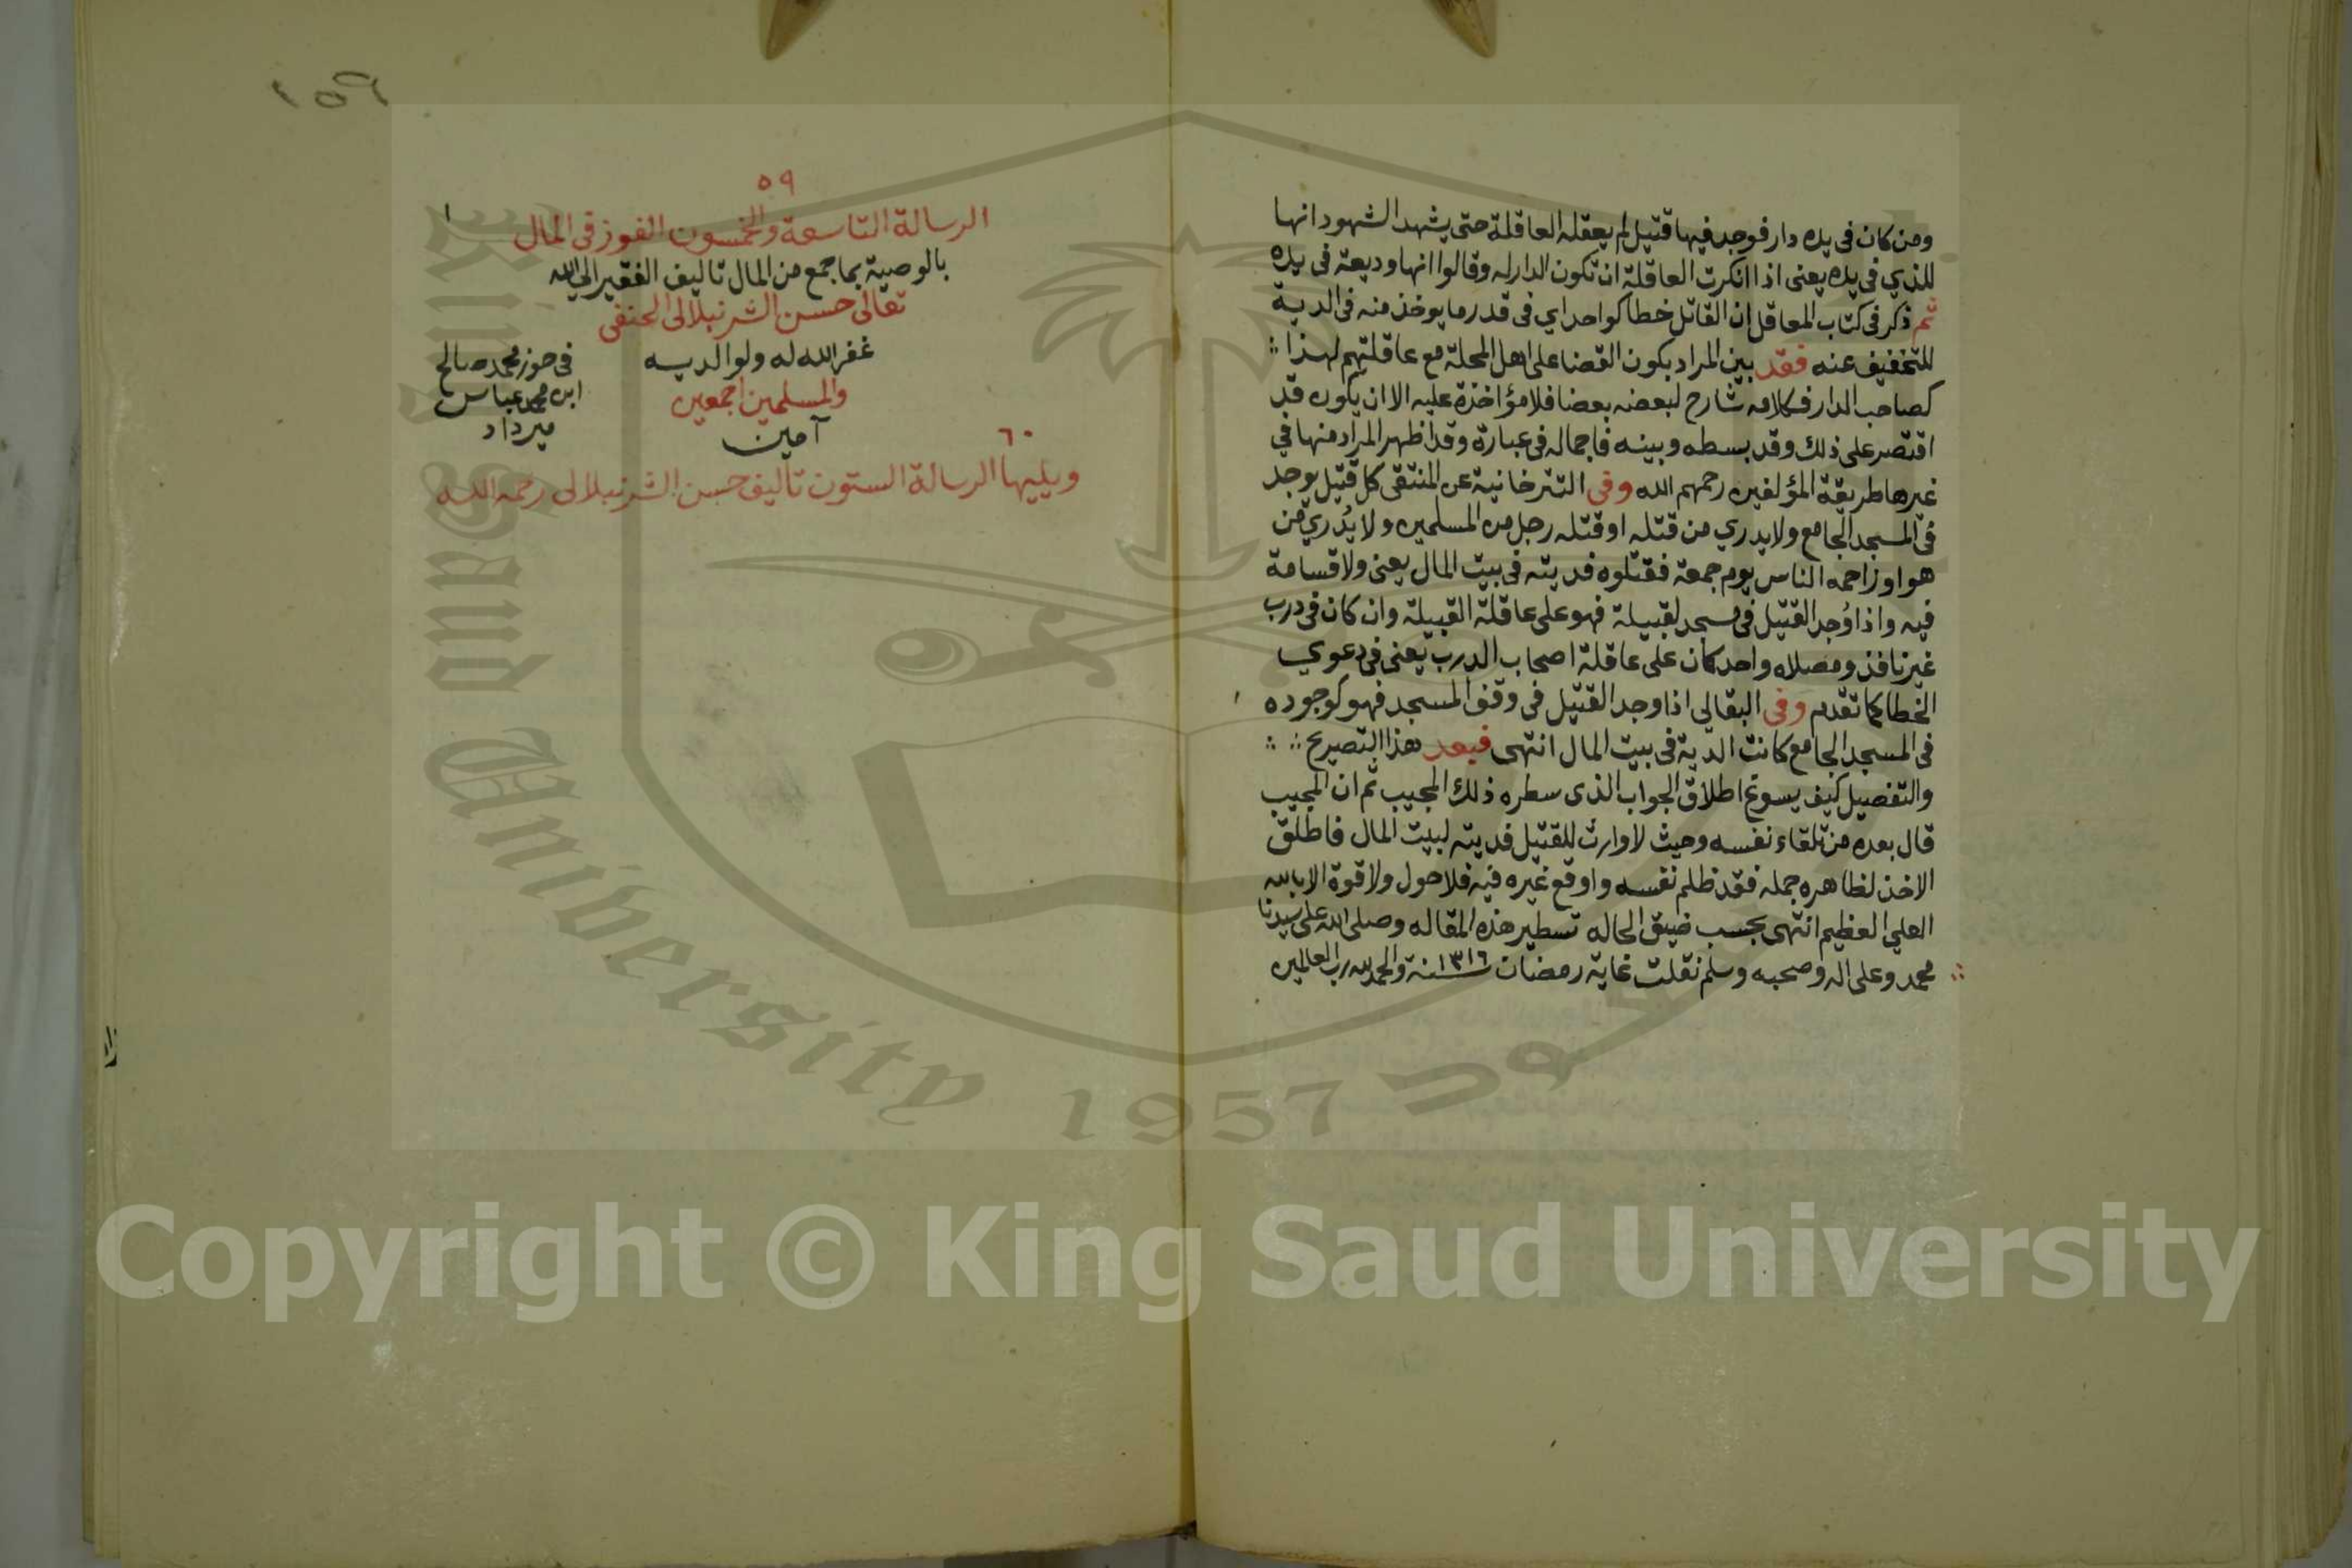 ومن كان فى يده دار فوجد فيها قتيل لم يعقله العاقلة حتى يشهد الشهود انها
للذي في يده يعنى اذا انكرت العاقلة ان تكون الدار له وقالوا انها وديعة فى يده
ثم ذكر فى كتاب المعاقل ان القاتل خطا كواحد اي فى قدر ما يوخذ منه فى الدية
للتخفيف عنه فقد بين المراد بكون القضا على اهل المحلة مع عاقلتهم لهذا
كصاحب الدار فكلامه شارح لبعضه بعضا فلا مؤاخذة عليه الا ان يكون قد
اقتصر على ذلك وقد بسطه وبينه فاجماله فى عبارة وقد اظهر المراد منها في
غيرها طريقة المؤلفين رحمهم الله وفى التترخانية عن المنتقى كل قتيل يوجد
فى المسجد الجامع ولا يدري من قتله او قتله رجل من المسلمين ولا يُدري من
هو او زاحمه الناس يوم جمعة فقتلوه فديته فى بيت المال يعنى ولا قسامة
فيه واذا وُجد القتيل فى مسجد لقبيلة فهو على عاقلة القبيلة وان كان فى درب
غير نافذ ومصلاه واحد كان على عاقلة اصحاب الدرب يعنى فى دعوي
الخطا كما تقدم وفى البقالى اذا وجد القتيل فى وقف المسجد فهو كوجوده
فى المسجد الجامع كانت الدية فى بيت المال انتهى فبعد هذا التصريح
والتفصيل كيف يسوغ اطلاق الجواب الذى سطره ذلك المجيب ثم ان المجيب
قال بعده من تلقاء نفسه وحيث لا وارث للقتيل فديته لبيت المال فاطلق
الاخذ لظاهره جمله فقد ظلم نفسه واوقع غيره فيه فلا حول ولا قوة الا بالله
العلي العظيم انتهى بحسب ضيق الحاله تسطير هذه المقاله وصلى الله على سيدنا
محمد وعلى اله وصحبه وسلم نقلت غاية رمضان سنة ١٣١٦ والحمد لله رب العالمين
١٥٩
٥٩
الرسالة التاسعة والخمسون الفوز فى المال
بالوصية بما جمع من المال تاليف الفقير الى الله
تعالى حسن الشرنبلالى الحنفى
غفر الله له ولوالديه
والمسلمين اجمعين
آمين
فى حوز محمد صالح
ابن محمد عباس
ميرداد
٦٠
ويليها الرسالة الستون تاليف حسن الشرنبلالى رحمه الله
King Saud University 1957
Copyright © King Saud University